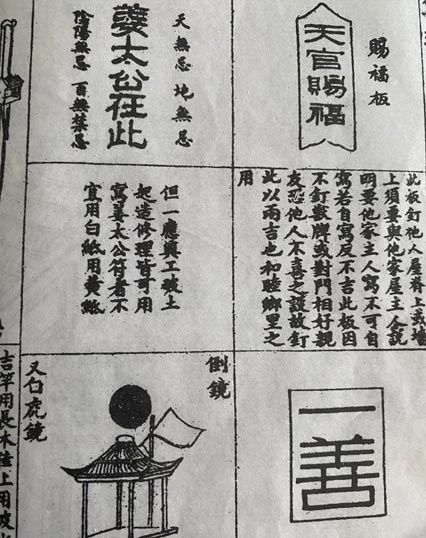 賜福板
天官賜福
天無忌 地無忌
姜太公在此
陰陽無忌 百無禁忌
此板釘他人屋脊上或墻
上須要與他家屋主人說
明要他家主人寫不可自
寫若自寫反不吉此板因
不釘獸牌或對門相好親
友恐他人不喜之設故釘
此以兩吉也和睦鄉里之
用
但一應興工破土
起造修理皆可用
寫姜太公符者不
宜用白紙用黃紙
一善
倒鏡
又白虎鏡
吉竿用長木